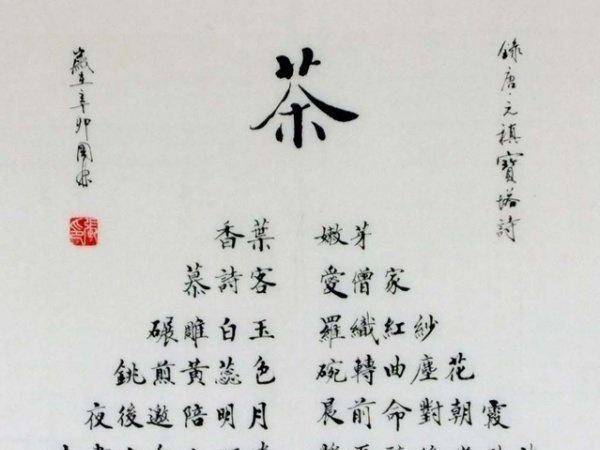 茶
錄唐元稹寶塔詩
香葉 嫩芽
慕詩客 愛僧家
碾雕白玉 羅織紅紗
銚煎黃蕊色 碗轉曲塵花
夜後邀陪明月 晨前命對朝霞
歲在辛卯